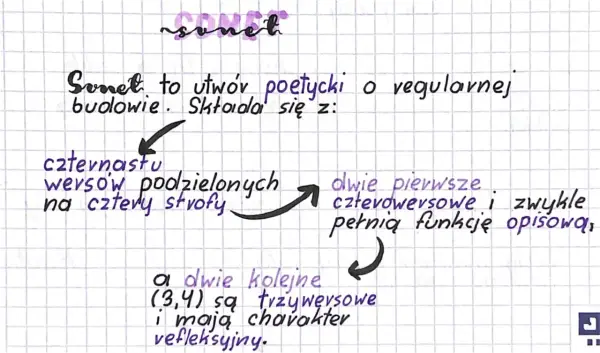 SONET
sonet
Sonet to utwór poetycki o regularnej
budowie. Składa się z:
czternastu
wersów podzielonych
na cztery strofy
dwie pierwsze
czterowersowe i zwykle
pełnią funkcję opisową,
a dwie kolejne
(3,4) są trzywersowe
i mają charakter
refleksyjny.